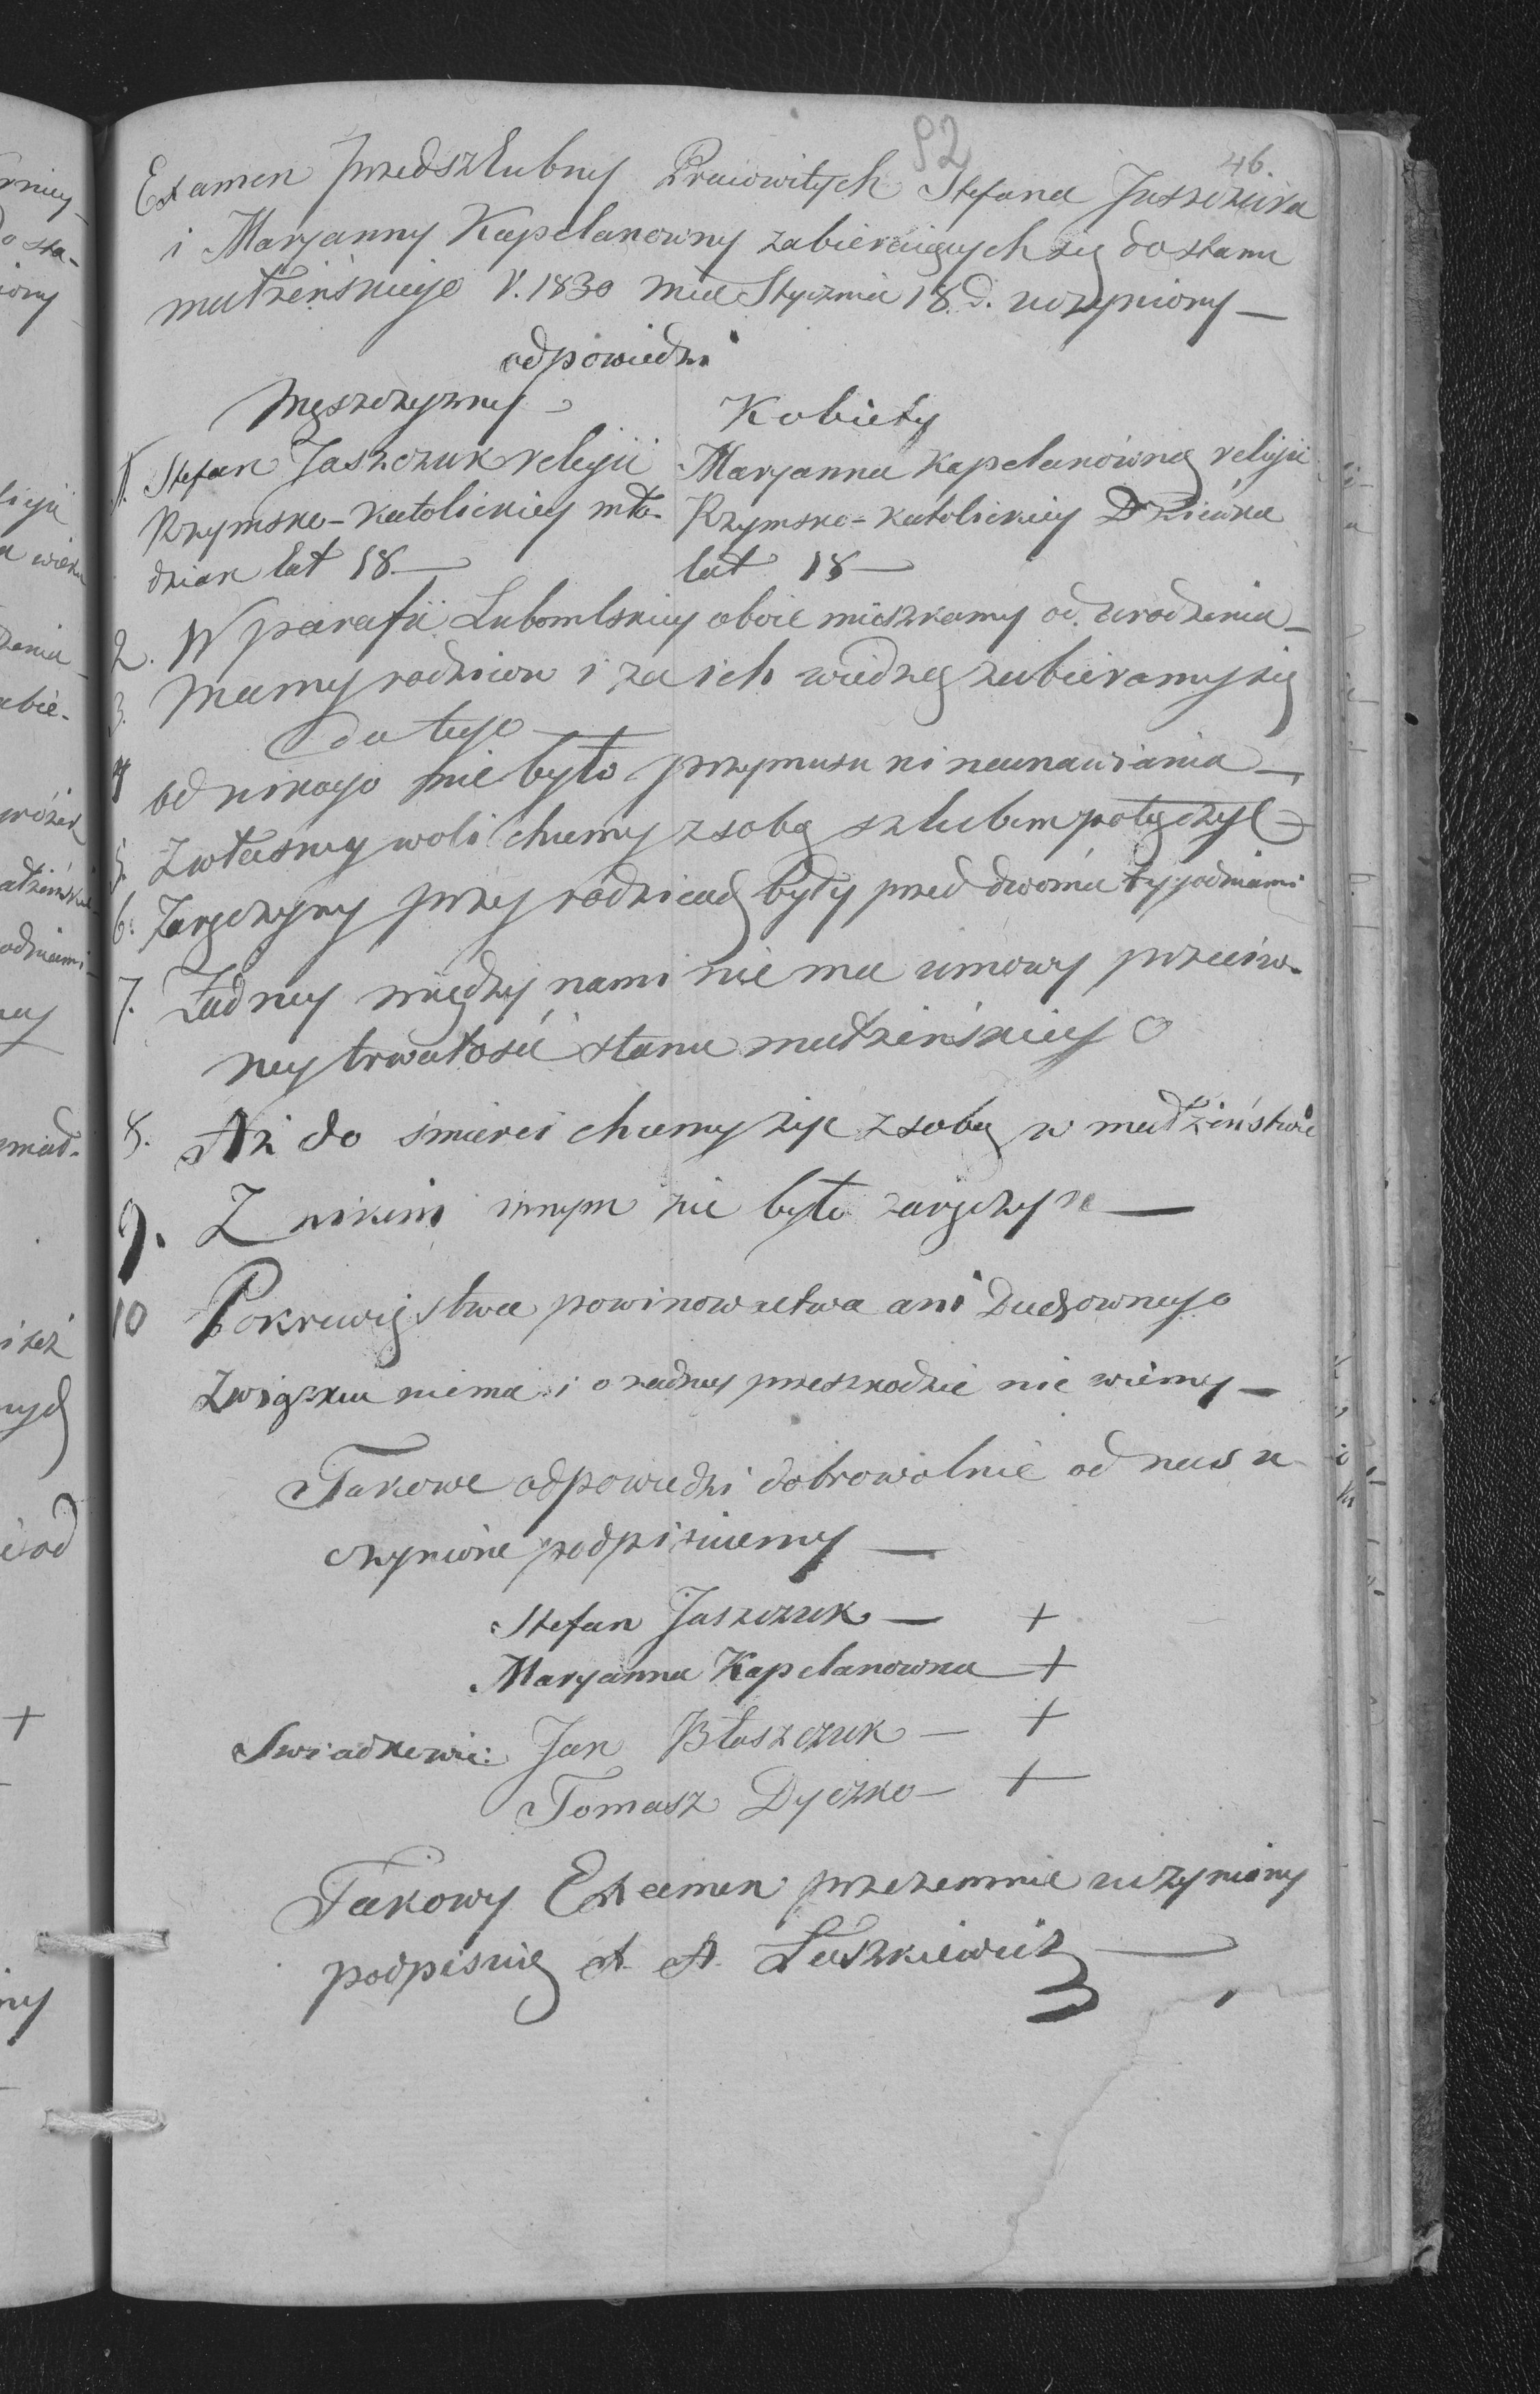 92
46.
Examen przedszlubny Pracowitych Stefana Jaszczuka
i Maryanny Kapelanowny zabieraiących się do stanu
małżeńskiego V. 1830 mca Stycznia 18. d. uczyniony —
odpowiedzi
Męszczyzny
Kobiety
1. Stefan Jaszczuk religii
Rzymsko-Katolickiey mło-
dzian lat 18 —
Maryanna Kapelanówna religii
Rzymsko-Katolickiey Dziewka
lat 18 —
2. W parafii Lubomlskiey oboie mieszkamy od urodzenia —
3. Mamy rodziców i za ich wiedzą zabieramy się
do tego —
4 od nikogo nie było przymusu ni naunawiania —
5. Z własney woli chcemy z sobą szlubem połączyć —
6. Zaręczyny przy rodzicach były przed dwoma tygodniami
7. Żadney między nami nie ma umowy przeciw-
ney trwałości stanu małżeńskiey
8. Aż do śmierci chcemy żyć z sobą w małżeństwie
9. Z nikim innym nie było zaręczyn —
10 Pokrewięstwa powinowactwa ani Duchownego
Związku niema i o żadney przeszkodzie nie wiemy —
Takowe odpowiedzi dobrowolnie od nas u-
czynione podpisuiemy —
Stefan Jaszczuk — +
Maryanna Kapelanowna — +
Swiadkowie: Jan Błaszczuk — +
Tomasz Dyczko — +
Takowy Examen przezemnie uczyniony
podpisuię A. A. Laszkiewicz —